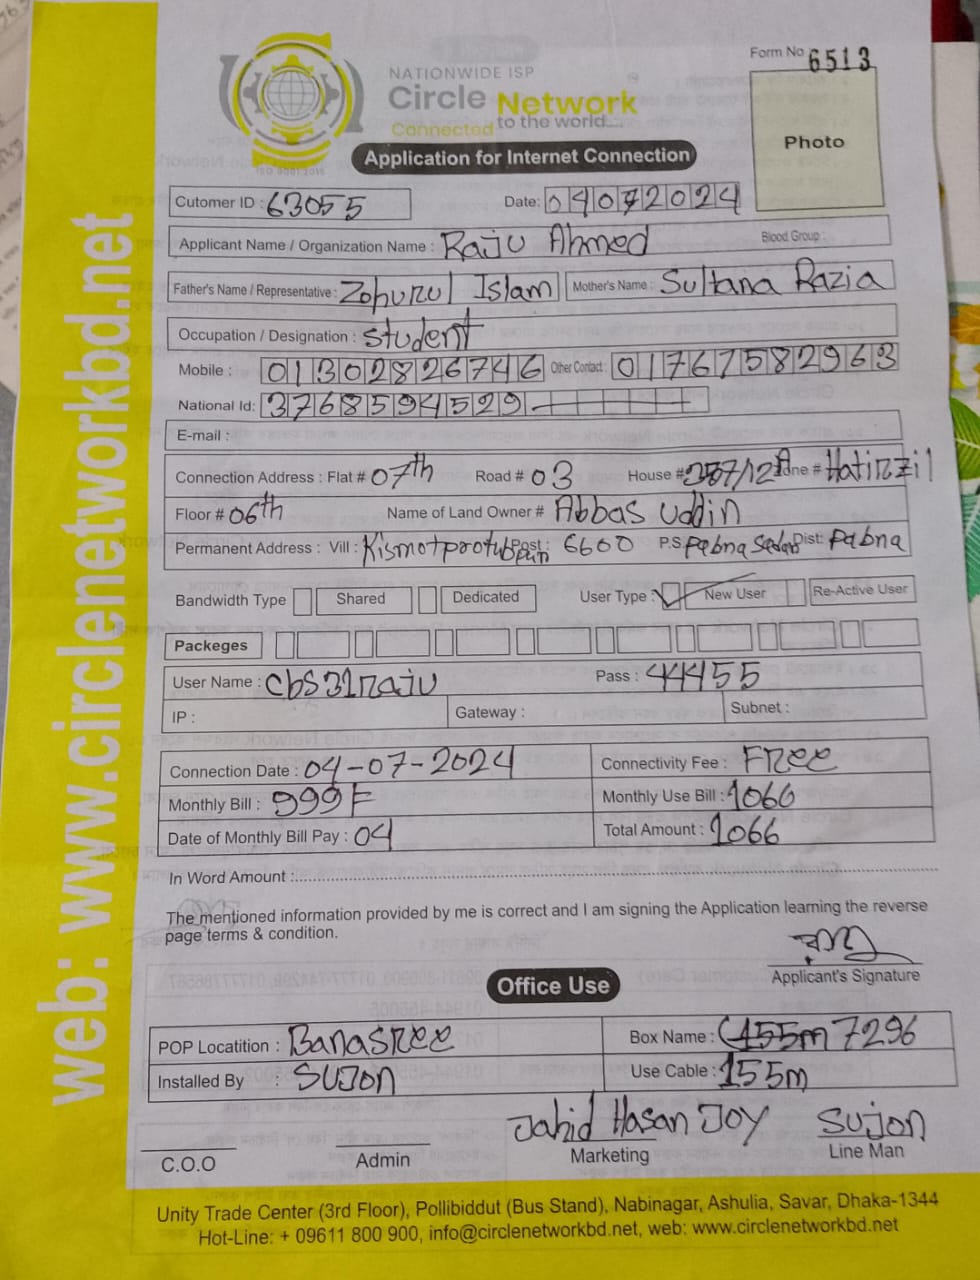 Form No 6513
NATIONWIDE ISP
Circle Network
Connected to the world....
ISO 9001:2015
Photo
Application for Internet Connection
Cutomer ID : 63055 Date: 04072024
Applicant Name / Organization Name : Raju Ahmed Blood Group :
Father's Name / Representative : Zohurul Islam Mother's Name : Sultana Razia
Occupation / Designation : Student
Mobile : 01302826746 Other Contact : 01767582963
National Id: 3768594529
E-mail :
Connection Address : Flat # 07th Road # 03 House # /12A Zone # Hatirzil
Floor # 06th Name of Land Owner # Abbas Uddin
Permanent Address : Vill : Post : 6600 P.S Pabna Sadar Dist: Pabna
Bandwidth Type Shared Dedicated User Type : New User Re-Active User
Packeges
User Name : cbs31raju Pass : 44455
IP : Gateway : Subnet :
Connection Date : 04-07-2024 Connectivity Fee : FRee
Monthly Bill : 999 Monthly Use Bill : 1066
Date of Monthly Bill Pay : 04 Total Amount : 1066
In Word Amount :
The mentioned information provided by me is correct and I am signing the Application learning the reverse
page terms & condition.
Applicant's Signature
Office Use
POP Locatition : BanasRee Box Name : 7296
Installed By : Sujon Use Cable : 155m
Jahid Hasan Joy Sujon
C.O.O Admin Marketing Line Man
Unity Trade Center (3rd Floor), Pollibiddut (Bus Stand), Nabinagar, Ashulia, Savar, Dhaka-1344
Hot-Line: + 09611 800 900, info@circlenetworkbd.net, web: www.circlenetworkbd.net
web: www.circlenetworkbd.net